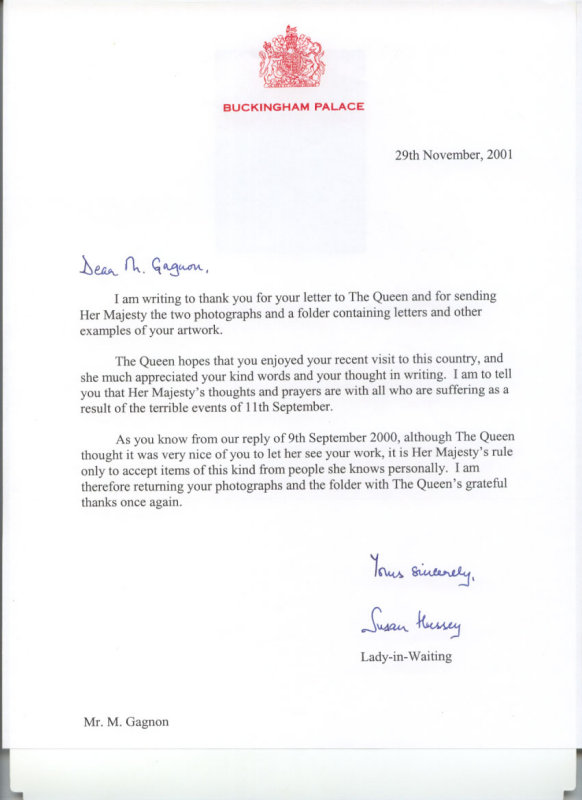 BUCKINGHAM PALACE
29th November, 2001
Dear Mr. Gagnon,
I am writing to thank you for your letter to The Queen and for sending
Her Majesty the two photographs and a folder containing letters and other
examples of your artwork.
The Queen hopes that you enjoyed your recent visit to this country, and
she much appreciated your kind words and your thought in writing. I am to tell
you that Her Majesty's thoughts and prayers are with all who are suffering as a
result of the terrible events of 11th September.
As you know from our reply of 9th September 2000, although The Queen
thought it was very nice of you to let her see your work, it is Her Majesty's rule
only to accept items of this kind from people she knows personally. I am
therefore returning your photographs and the folder with The Queen's grateful
thanks once again.
Yours sincerely,
Susan Hussey
Lady-in-Waiting
Mr. M. Gagnon